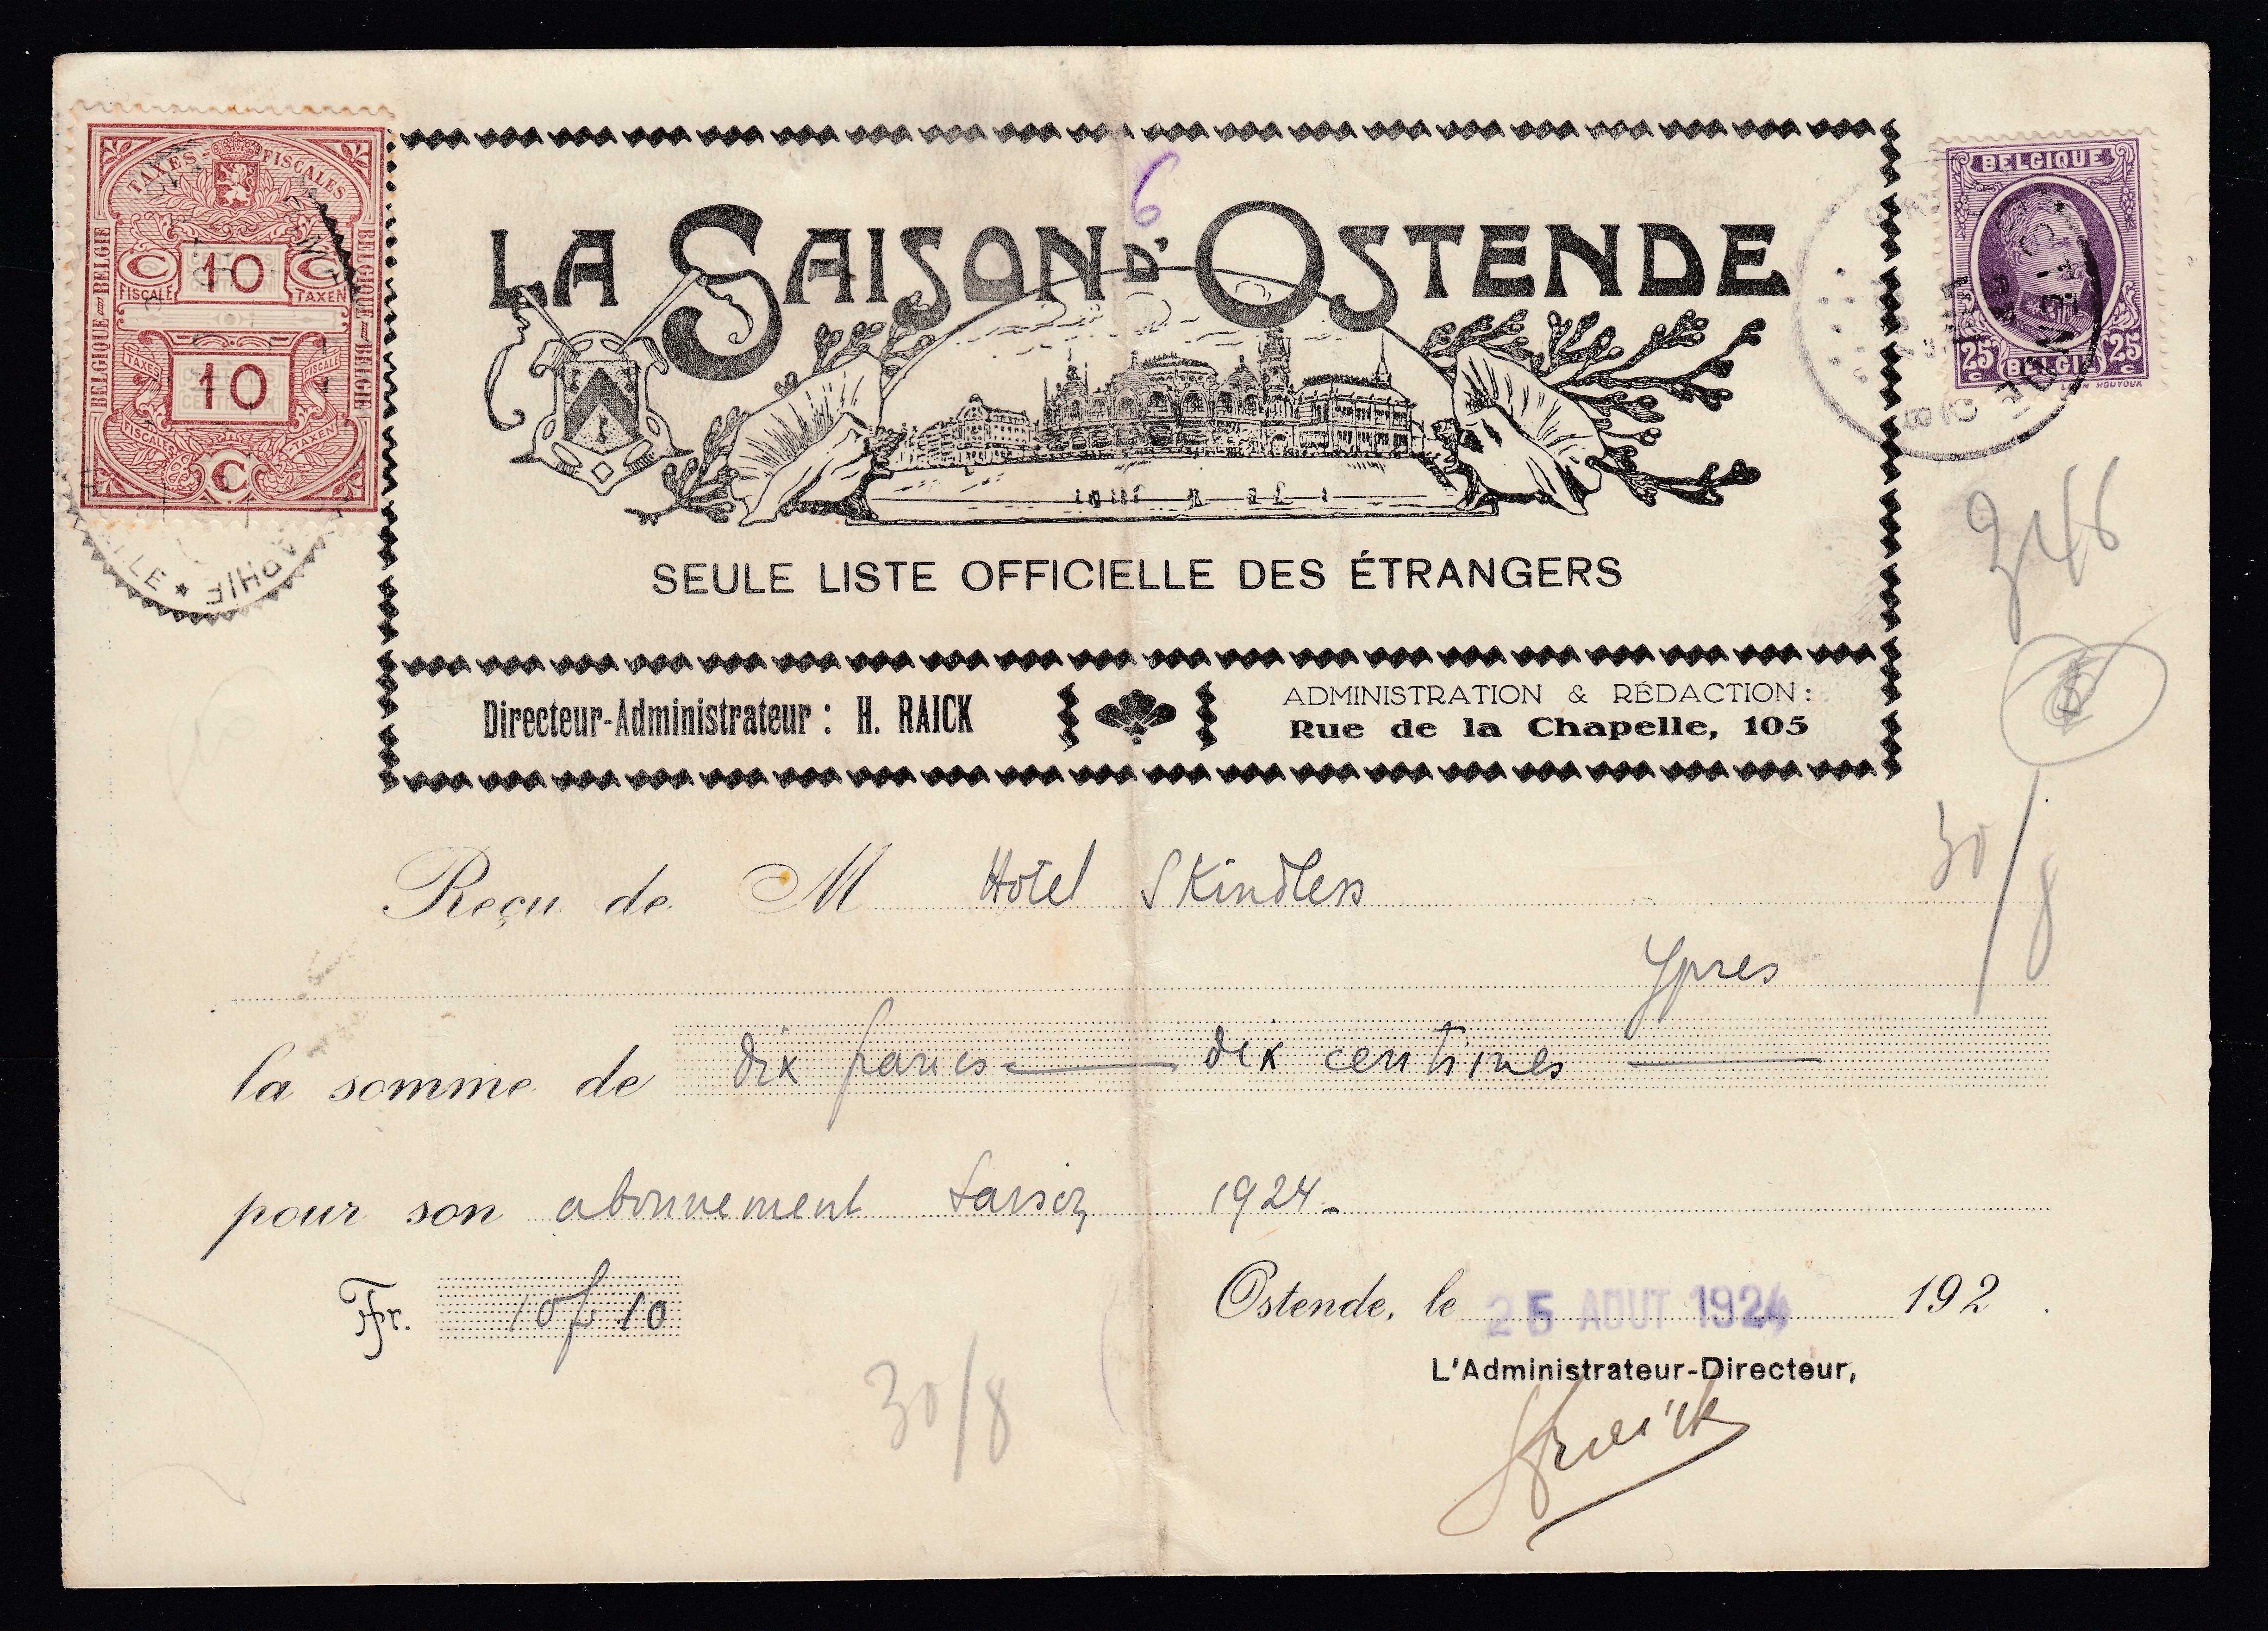 TAXES-FISCALES
BELGIQUE-BELGIE
BELGIQUE-BELGIE
C 10 C
FISCALE TAXEN
TAXES FISCALES
10
FISCALE TAXEN
C
6
LA SAISON D'OSTENDE
BELGIQUE
25 c BELGIË 25 c
HOUYOUX
SEULE LISTE OFFICIELLE DES ÉTRANGERS
Directeur-Administrateur : H. RAICK
ADMINISTRATION & RÉDACTION :
Rue de la Chapelle, 105
30/8
Reçu de M Hotel Skindless
Ypres
la somme de dix francs — dix centimes —
pour son abonnement Saison 1924.
Fr. 10f 10
Ostende, le 25 AOUT 1924 192 .
L'Administrateur-Directeur,
HRaick
30/8